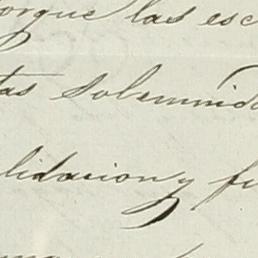 orque las esc
tas solemnida
lidacion y fi